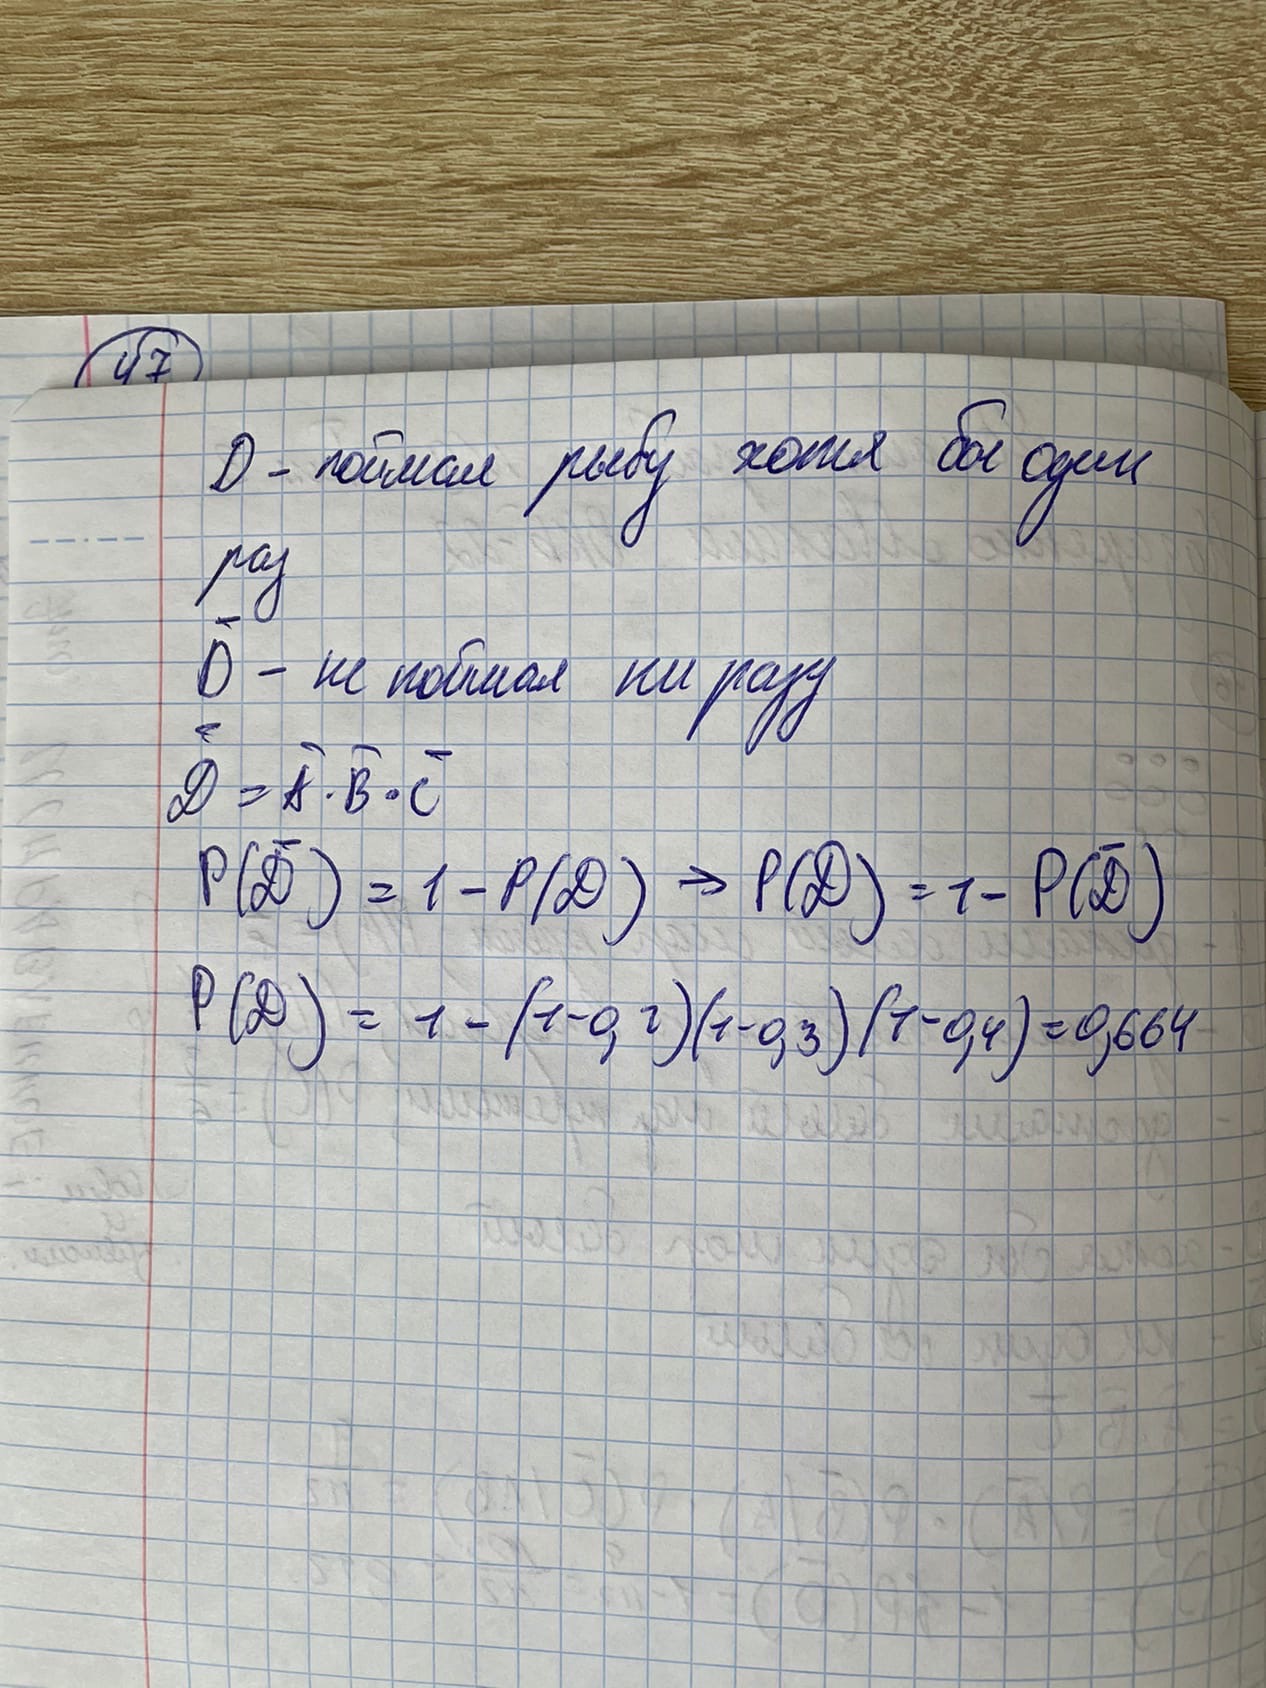 47
D - поймал рыбу хотя бы один
раз
D̄ - не поймал ни разу
D̄ = Ā · B̄ · C̄
P(D̄) = 1 - P(D) → P(D) = 1 - P(D̄)
P(D) = 1 - (1-0,2)(1-0,3)(1-0,4) = 0,664